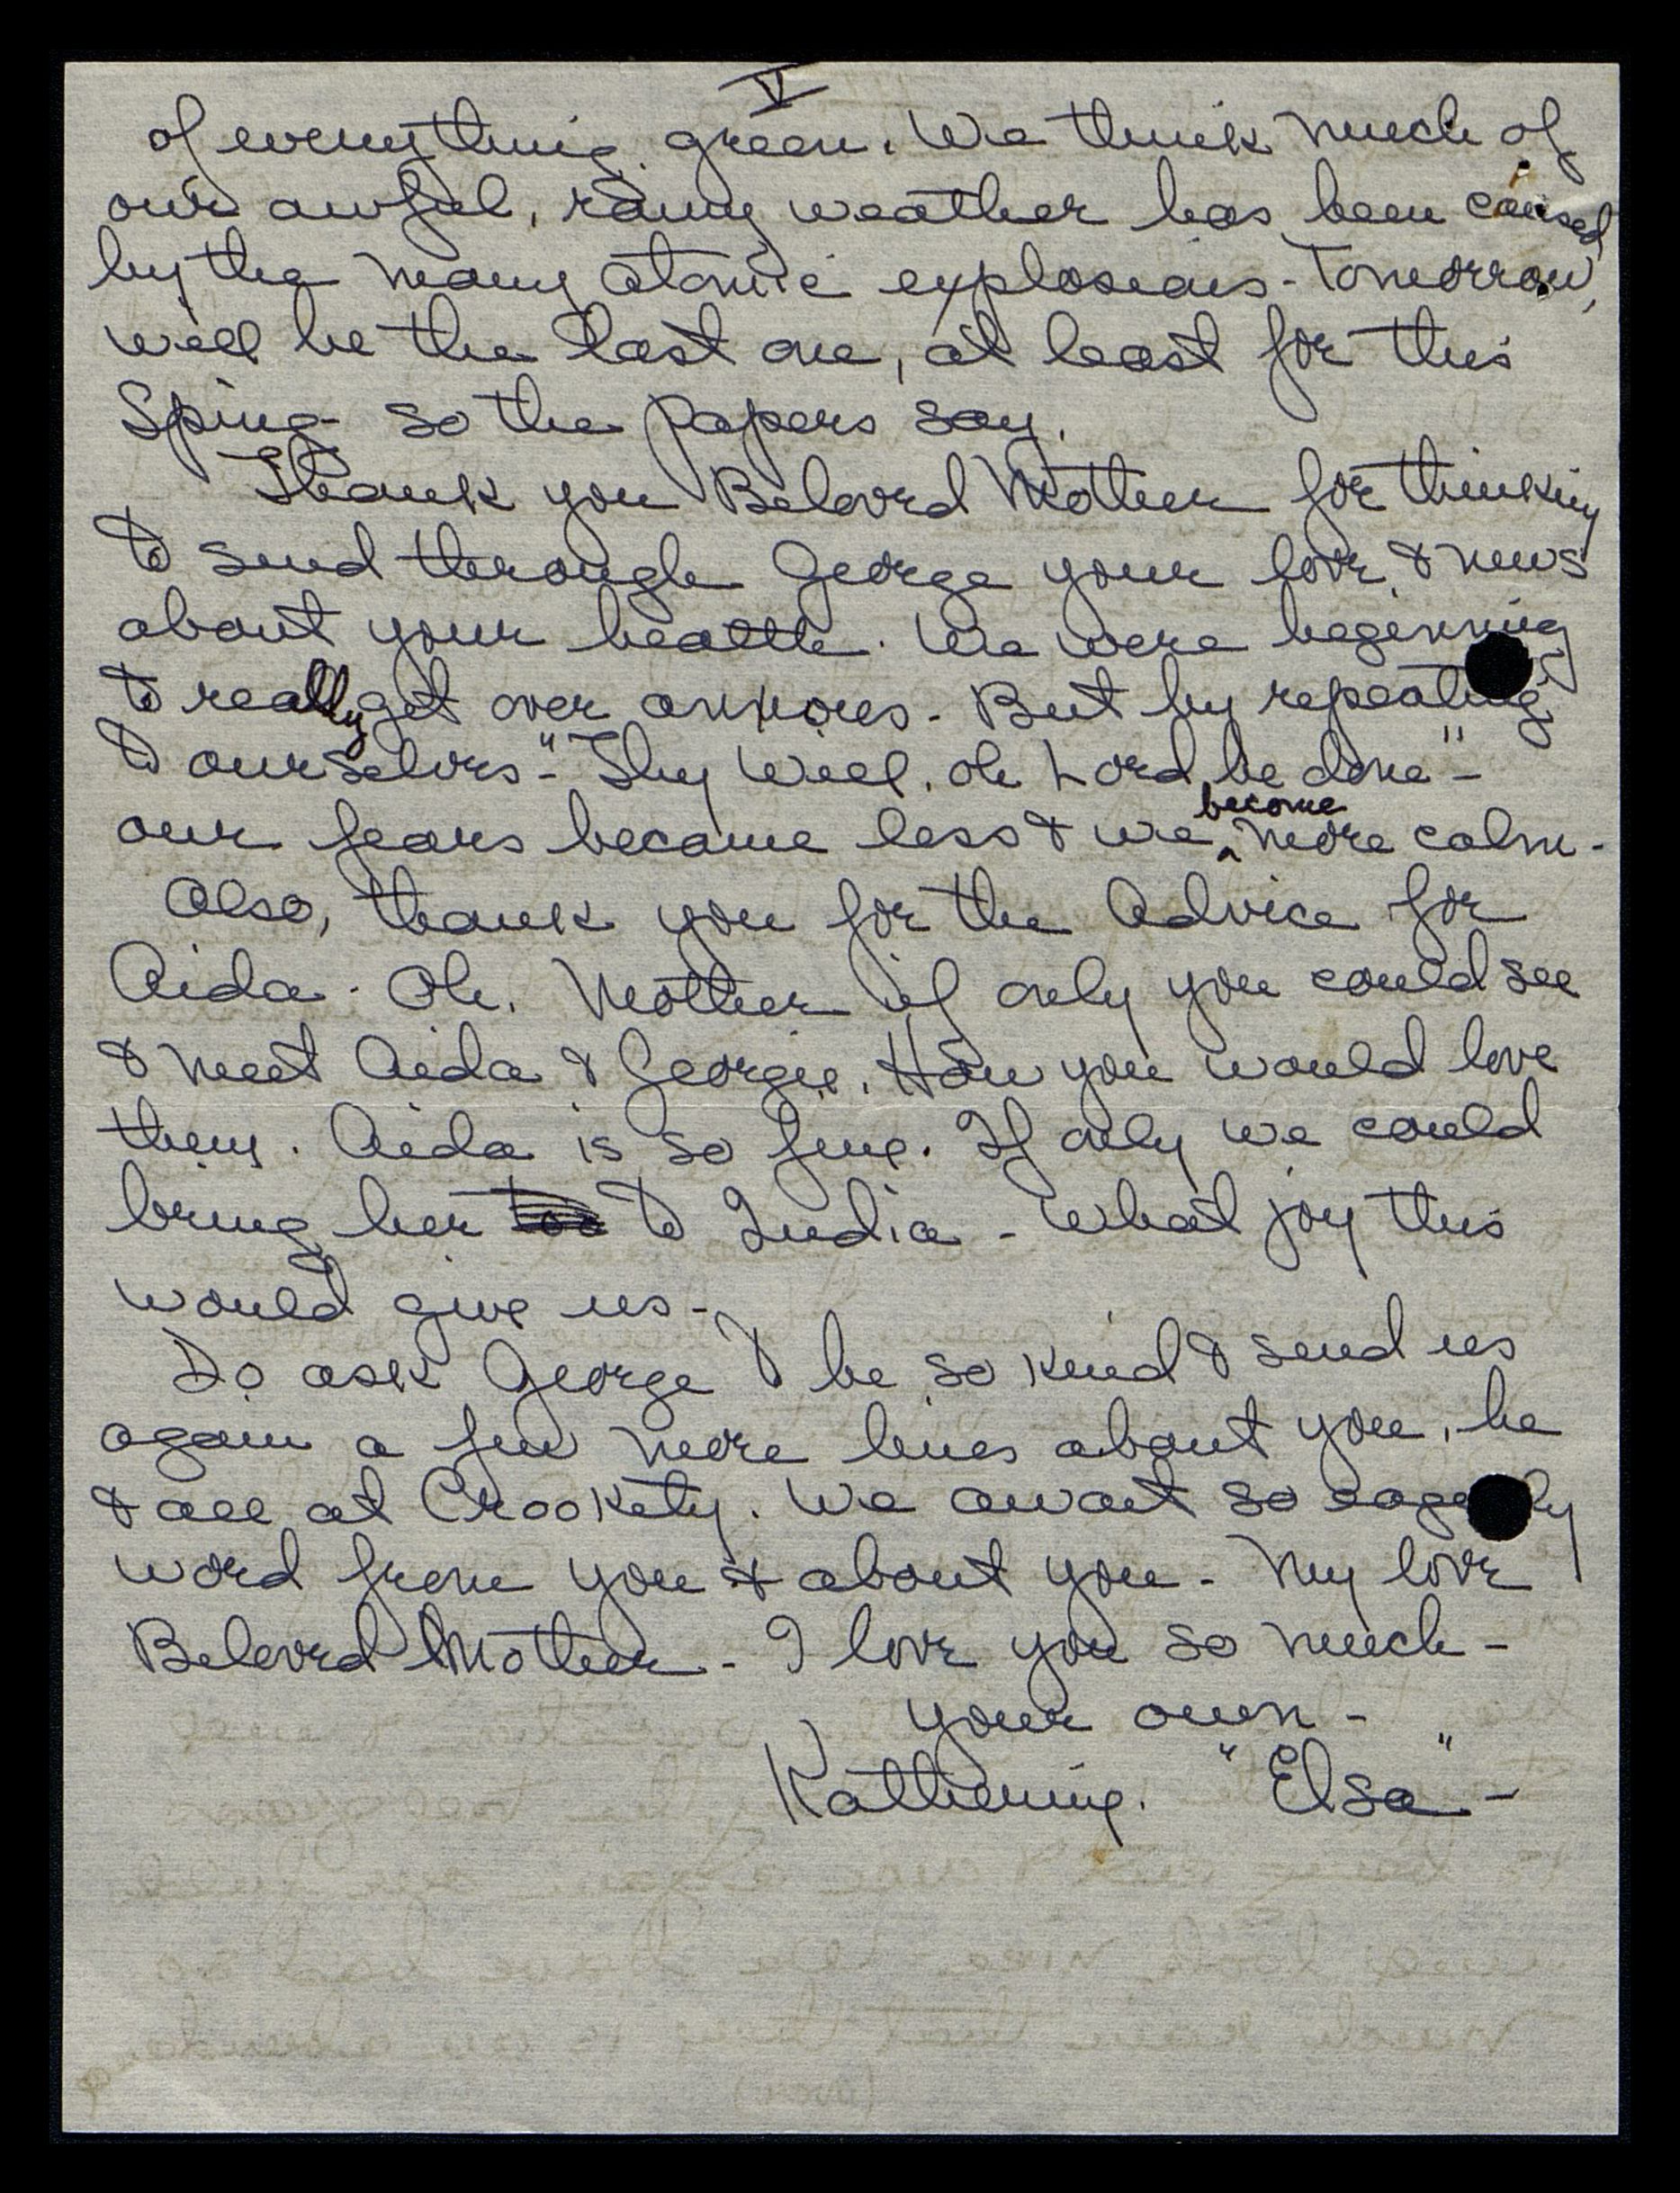 V
of everything green. We think much of
our awful, rainy weather has been caused
by the many atomic explosions - Tomorrow,
will be the last one, at least for this
Sping - so the papers say.
Thank you Beloved Mother for thinking
to send through George your love & news
about your health. We were beginning
to really get over anxious - But by repeating
to ourselves - "Thy Will, oh Lord be done" -
our fears became less & we become more calm -
Also, thank you for the Advice for
Aida - Oh, Mother if only you could see
& meet Aida & Georgie. How you would love
them. Aida is so fine. If only we could
bring her to India - What joy this
would give us -
Do ask George to be so kind & send us
again a few more lines about you, he
& all at Crookety. We await so eagerly
word from you & about you - My love
Beloved Mother - I love you so much -
your own -
Katherine. "Elsa" -